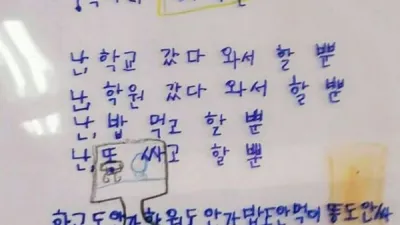 난, 학교 갔다 와서 할 뿐
난, 학원 갔다 와서 할 뿐
난, 밥 먹고 할 뿐
난, 똥 싸고 할 뿐
학교도안가 학원도안가 밥도안먹어 똥도안싸